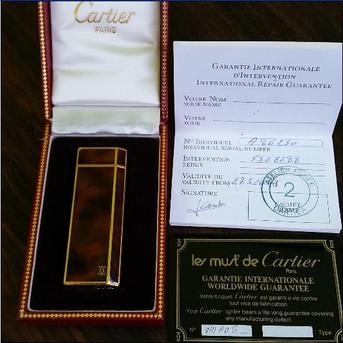 Cartier
PARIS
GARANTIE INTERNATIONALE
D'INTERVENTION
INTERNATIONAL REPAIR GUARANTEE
VOTRE NOM
YOUR NAME
VOTRE
YOUR
N° INDIVIDUEL
INDIVIDUAL SERIAL NUMBER
INTERVENTION
REPAIR
VALIDITÉ DU
VALIDITY FROM
SIGNATURE
2
CACHET
les must de Cartier
Paris
GARANTIE INTERNATIONALE
WORLDWIDE GUARANTEE
Votre briquet Cartier est garanti à vie contre
tout vice de fabrication.
Your Cartier lighter bears a life long guarantee covering
any manufacturing defect
N° Type